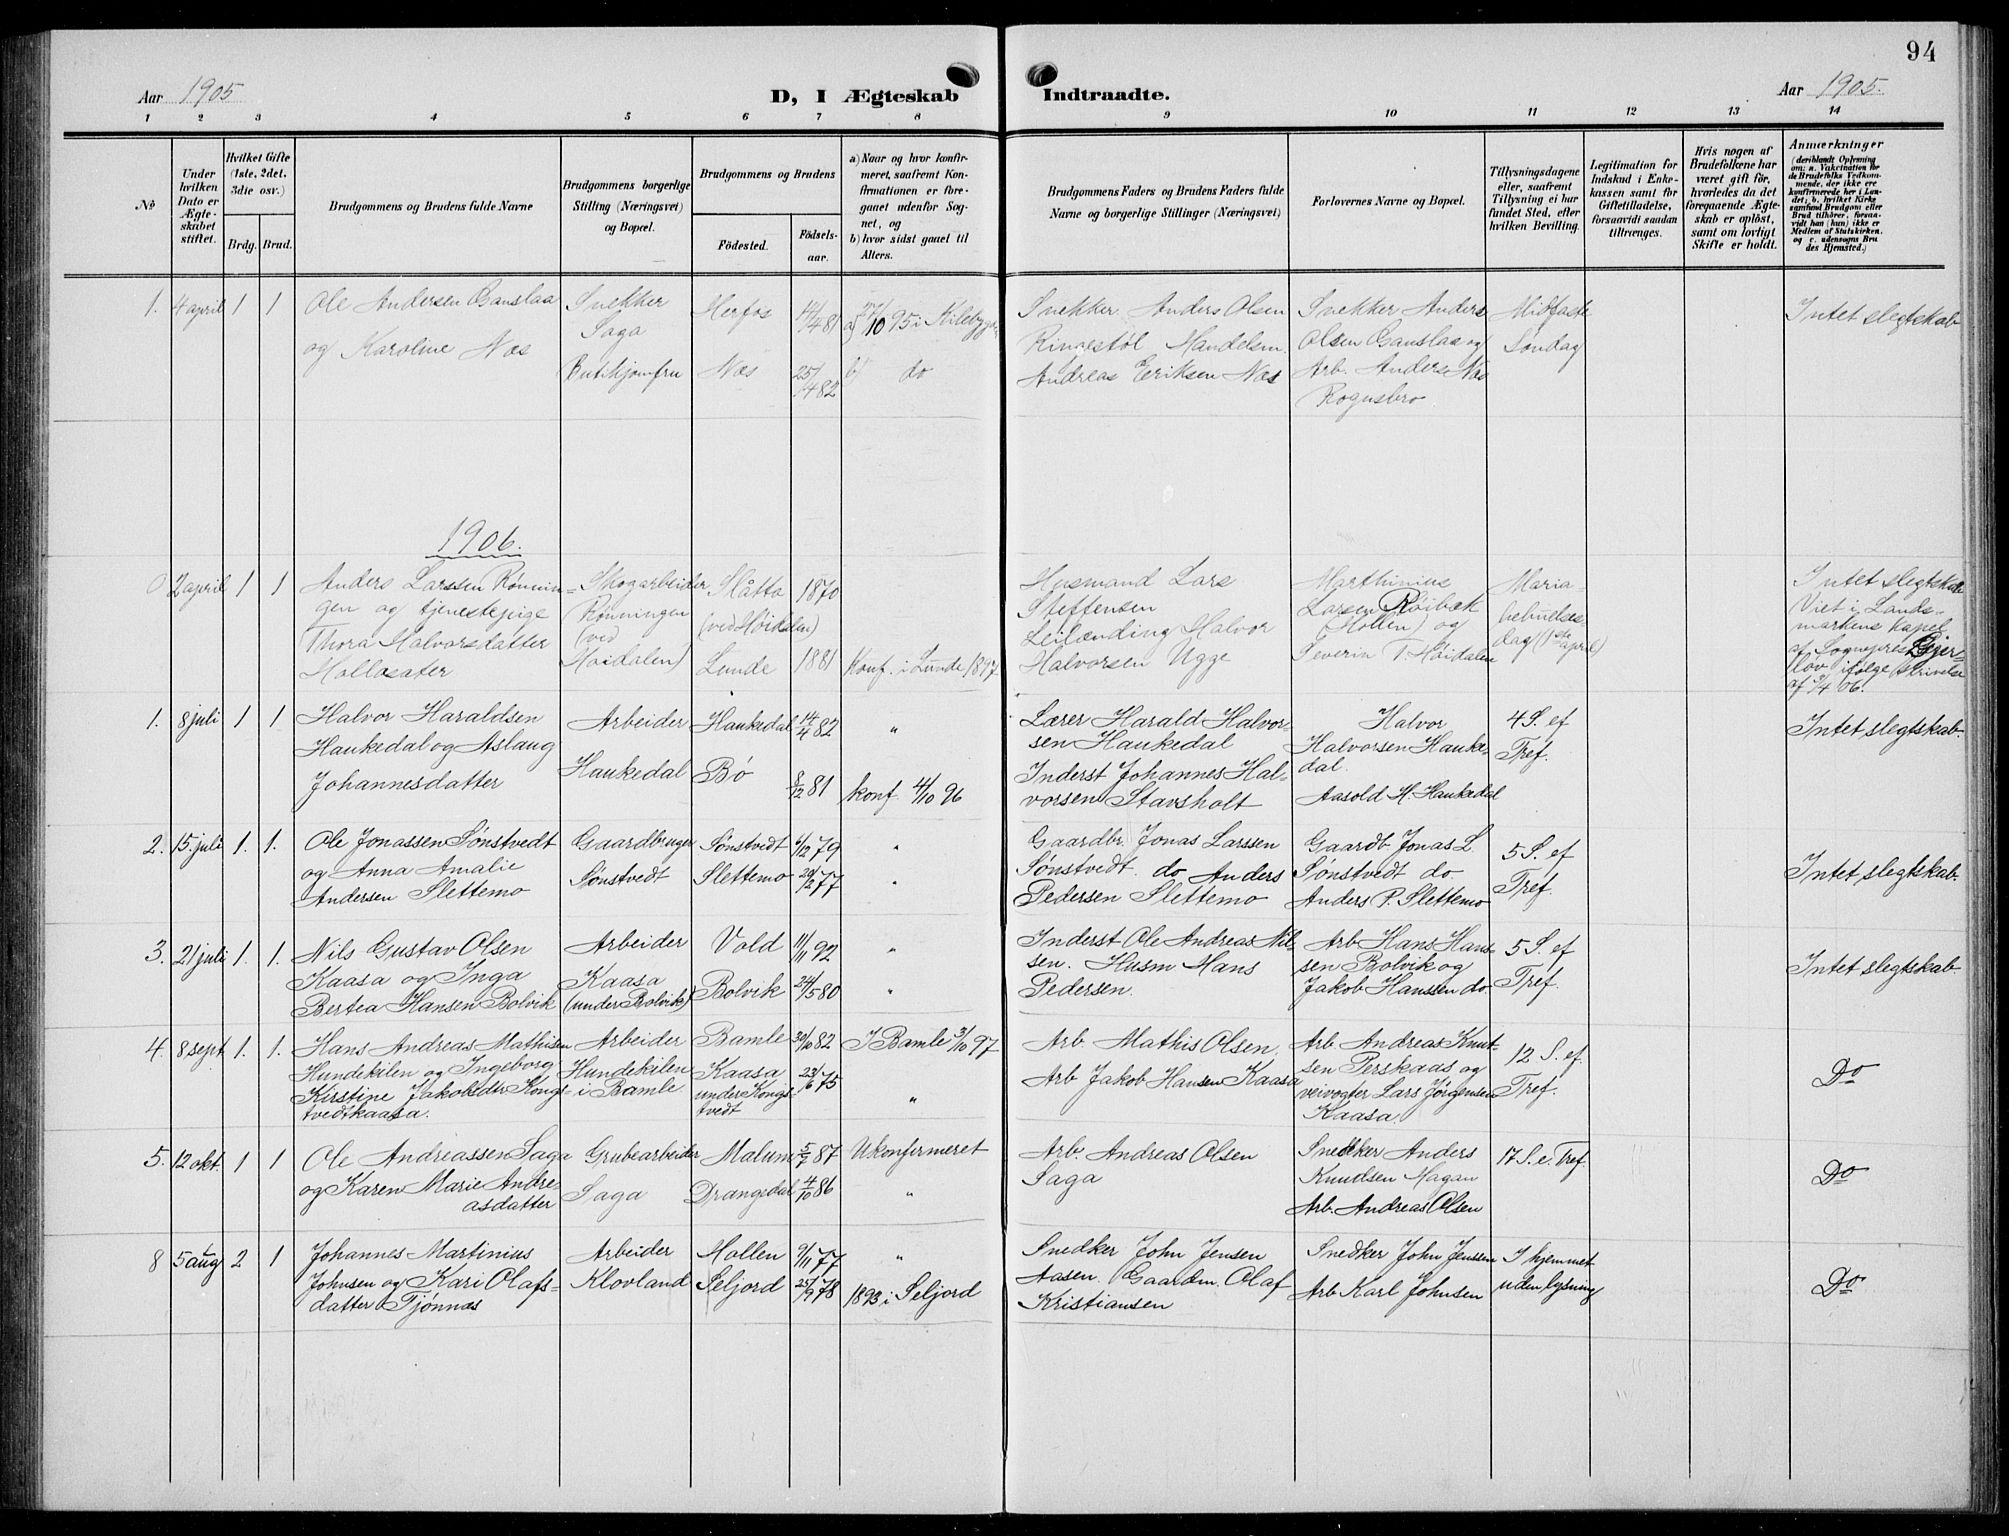 94
Aar 1905
D, I Ægteskab
Indtraadte.
Aar 1905.
1 2 3 4 5 6 7 8 9 10 11 12 13 14
No
Under hvilken Dato er Ægteskabet stiftet.
Hvilket Gifte (1ste, 2det, 3die osv.)
Brdg. Brud.
Brudgommens og Brudens fulde Navne
Brudgommens borgerlige Stilling (Næringsvei) og Bopæl.
Brudgommens og Brudens
Fødested.
Fødselsaar.
a) Naar og hvor konfirmeret, saafremt Konfirmationen er foregaaet udenfor Sognet, og
b) hvor sidst gaaet til Alters.
Brudgommens Faders og Brudens Faders fulde Navne og borgerlige Stillinger (Næringsvei)
Forlovernes Navne og Bopæl.
Tillysningsdagene eller, saafremt Tillysning ei har fundet Sted, efter hvilken Bevilling.
Legitimation for Indskud i Enkekassen samt for Giftetilladelse, forsaavidt saadan tiltrænges.
Hvis nogen af Brudefolkene har været gift før, hvorledes da det foregaaende Ægteskab er opløst, samt om lovligt Skifte er holdt.
Anmærkninger
(deriblandt Oplysning om: a. Vaksination for de Brudefolks Vedkommende, der ikke ere konfirmerede her i Landet; b. hvilket Kirkesamfund Brudgom eller Brud tilhører, forsaavidt han (hun) ikke er Medlem af Statskirken. og c. udensogns Brudes Hjemsted.)
1. 4 april 1 1 Ole Andersen Ganslaa og Karoline Næs
Snekker Saga
Budihjomfru
Herfos 12/4 81
Næs 25/4 82
a) 27/10 95 i Kilebygden
b) do
Snekker Anders Olsen Ringestøl Mandelsm.
Andreas Eriksen Næs
Snekker Anders Olsen Ganslaa og Arb. Anders Næs Rognsbro
Midfaste Søndag
Intet slegtskab
1906.
0 2 april 1 1 Anders Larssen Rønningen og tjenestepige Thora Halvorsdatter Hollesæter
Skogarbeider Rønningen (ved Høidalen)
Slåtta (ved Høidalen) 1870
Lunde 1881
Konf. i Lunde 1897
Husmand Lars Steffensen
Leilænding Halvor Halvorsen Ugge
Marthinius Larsen Røibæk (Hollen) og Severin T. Høidalen
Maria bebudelsesdag (1ste april)
Intet slegtskab
Viet i Landsmarkens kapel af Sognepres Gjerløv ifølge skrivelse af 3/4 06.
1. 8 juli 1 1 Halvor Haraldsen Haukedal og Aslaug Johannesdatter
Arbeider Haukedal
Haukedal 14/4 82
Bø 8/12 81
"
konf. 4/10 96
Lærer Harald Halvorsen Haukedal
Inderst Johannes Halvorsen Stavsholt
Halvor Halvorsen Haukedal.
Aasold H. Haukedal
4 S. ef Tref.
Intet slegtskab.
2. 15 juli 1. 1. Ole Jonassen Sønstvedt og Anna Amalie Andersen Slettemo
Gaardbruger Sønstvedt
Sønstvedt 6/12 79
Slettemo 20/2 77
"
"
Gaardbr. Jonas Larssen Sønstvedt. do Anders Pedersen Slettemo
Gaardb. Jonas L. Sønstvedt do Anders P. Slettemo
5 S. ef Tref.
Intet slegtskab.
3. 21 juli 1. 1. Nils Gustav Olsen Kaasa og Inga Bertea Hansen Bolvik
Arbeider Kaasa (under Bolvik)
Vold 11/11 92
Bolvik 24/5 80
"
"
Inderst Ole Andreas Nilsen. Husm Hans Pedersen.
Arb Hans Hanssen Bolvik og Jakob Hanssen do.
5 S. ef Tref.
Intet slegtskab
4. 8 sept 1. 1. Hans Andreas Mathisen Hundekilen og Ingeborg Kirstine Jakobsdtr Kongstvedtkaasa.
Arbeider Hundekilen i Bamle
Bamle 30/10 82
Kaasa under Kongstvedt 23/6 75
I Bamle 3/10 97
"
Arb Mathis Olsen.
Arb Jakob Hansen Kaasa
Arb. Andreas Knutsen Perskaas og veivogter Lars Jørgensen Kaasa.
12. S. ef. Tref.
Do
5. 12 okt. 1 1 Ole Andreassen Saga og Karen Marie Andreasdatter
Grubearbeider Saga
Malum 5/7 87
Drangedal 4/10 86
Ukonfirmeret
"
Arb. Andreas Olsen Saga
Snedker Anders Knudsen Hagan
Arb. Andreas Olsen
17 S. e. Tref
Do
8 5 aug 2 1 Johannes Martinius Johnsen og Kari Olafsdatter Tjønnæs
Arbeider Klovland
Hollen 9/11 77
Seljord 25/9 78
"
1893 i Seljord
Snedker John Jensen Aasen. Gaardm. Olaf Kristiansen
Snedker John Jenssen
Arb Karl Johnsen
I hjemmet uden lysning
Do